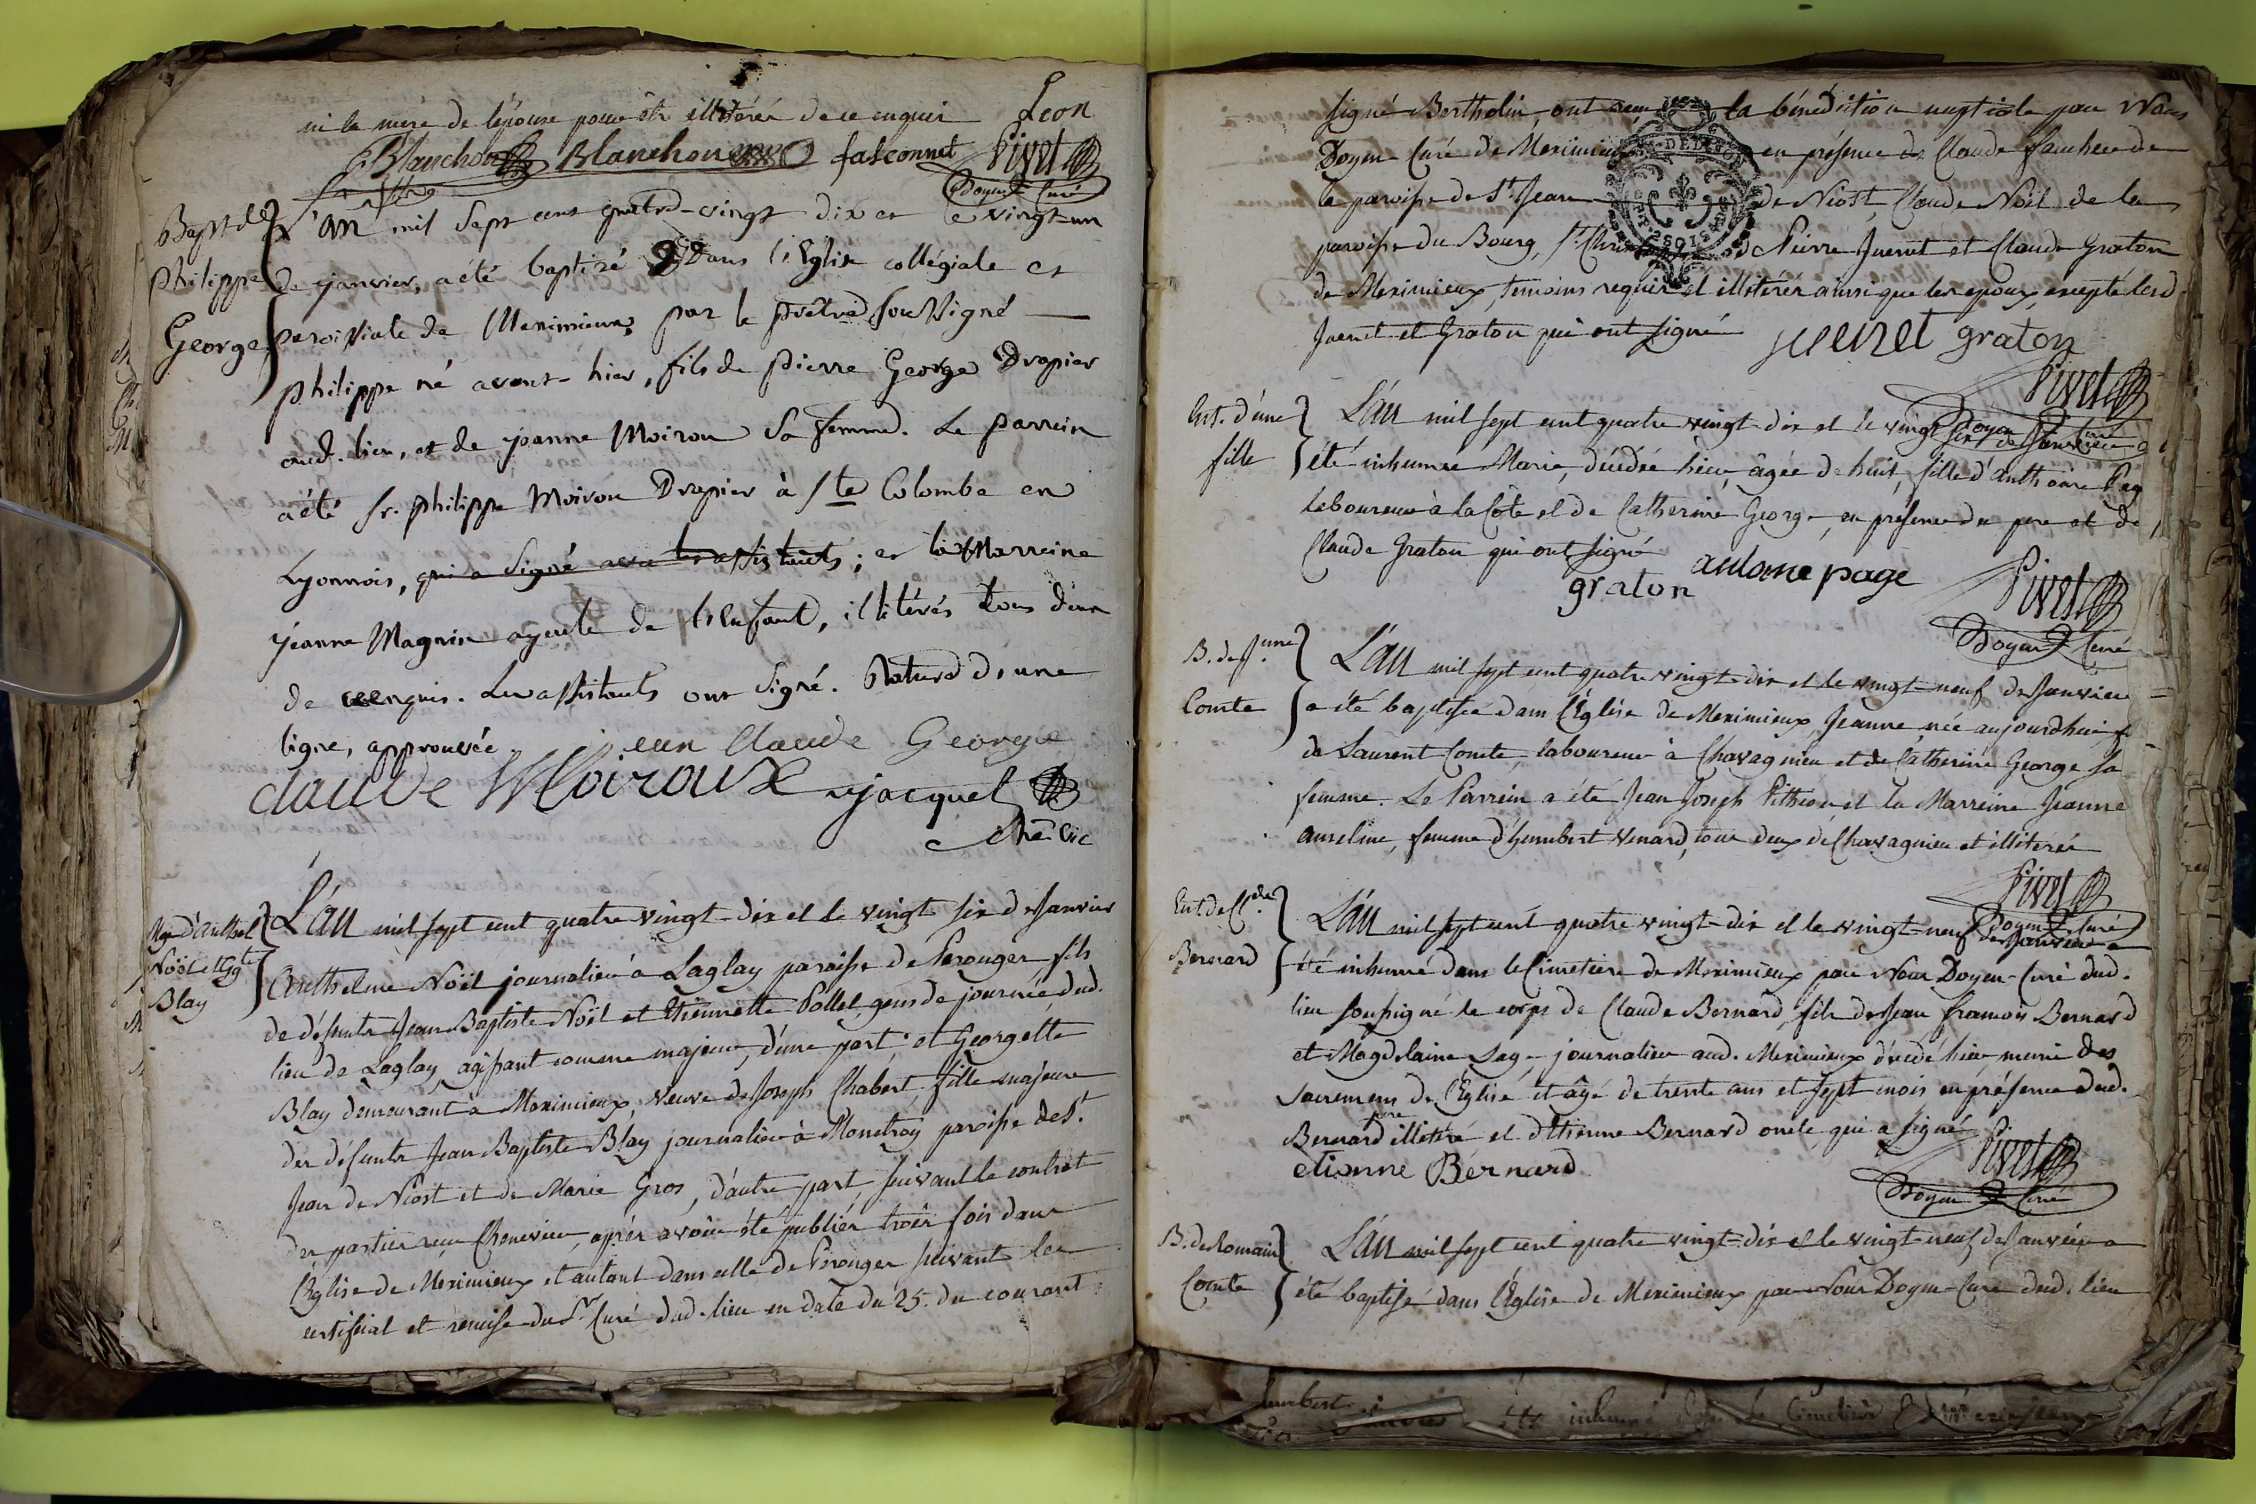 ni la mere de l'épouse pour être illitérés de ce enquis Leon
Blanchon Blanchon falconnet Pivet
Doyen Curé
Bapt. de Philippe George
L'an mil sept cent quatre-vingt dix et le vingt un
de janvier, a été baptizé dans l'Eglise collégiale et
paroissiale de Meximieux, par le prêtre soussigné
philippe né avant-hier, fils de pierre George Drapier
aud. lieu, et de jeanne Moiron sa femme. Le parrein
a été sr. philippe Moiron Drapier à Ste Colombe en
Lyonnois, qui a signé avec les assistants; et la Marreine
jeanne Magnin ayeule de l'Enfant, illitérés tous deux
de ce enquis. Les assistants ont signé. Rature d'une
ligne, approuvée.
jean Claude George
claude Moiroux jacquet
che. vic
Mge d'Anthel. Noël et Ggte Blay
L'an mil sept cent quatre vingt-dix et le vingt six de Janvier
Anthelme Noël journalier à Laglay paroisse de Perouges fils
de défunts Jean Baptiste Noël et Etiennette Pollet gens de journée dud.
lieu de Laglay agissant comme majeur, d'une part; et Georgette
Blay demeurant à Meximieux, veuve de Joseph Chabert fille majeure
des défunts Jean Baptiste Blay journalier à Monetroy paroisse de St.
Jean de Niost et de Marie Gros, d'autre part suivant le contrat
des parties reçu Chenevier, après avoir été publiés trois fois dans
l'Eglise de Meximieux et autant dans celle de Perouges suivant le
certificat et remise du Sr. Curé dud. lieu en date du 25. du courant
signé Bertholin, ont reçu la bénédiction nuptiale par Nous
Doyen Curé de Meximieux en présence de Claude faucheu de
la paroisse de St. Jean de Niost Claude Noël de la
paroisse du Bourg St. Christophe de Pierre Juenet et Claude Graton
de Meximieux, temoins requis et illitérés ainsi que les epoux excepté lesd.
Juenet et Graton qui ont signé juenet graton
Pivet
Doyen Curé
Ent. d'une fille
L'an mil sept cent quatre vingt-dix et le vingt six de Janvier a
été inhumée Marie, décédée hier, âgée de huit, fille d'Anthoine Page
laboureur à la Côte et de Catherine George, en présence du pere et de
Claude Graton qui ont signé
graton antoine page
Pivet
Doyen Curé
B. de Jnne Comte
L'an mil sept cent quatre vingt-dix et le vingt-neuf de Janvier
a été baptisée dans l'Église de Meximieux Jeanne née aujourdhui f.
de Laurent Comte, laboureur à Chavagnieu et de Catherine George sa
femme. Le Parrein a été Jean Joseph Pithiou et la Marreine Jeanne
Anselme, femme d'Humbert Venard, tous deux de Chavagnieu et illitérés
Pivet
Doyen Curé
Ent. de Cl.de Bernard
L'an mil sept cent quatre vingt-dix et le vingt-neuf de Janvier a
été inhumé dans le Cimetiere de Meximieux par Nous Doyen-Curé dud.
lieu soussigné le corps de Claude Bernard, fils de Jean francois Bernard
et Magdelaine Sage journalier aud. Meximieux décédé hier muni des
sacremens de l'Eglise et âgé de trente ans et sept mois en présence dud.
Bernard pere illitéré et d'Etienne Bernard oncle qui a signé
etienne Bernard
Pivet
Doyen Curé
B. de Romain Comte
L'an mil sept cent quatre vingt-dix et le vingt-neuf de Janvier a
été baptisé dans l'Église de Meximieux par Nous Doyen-Curé dud. lieu